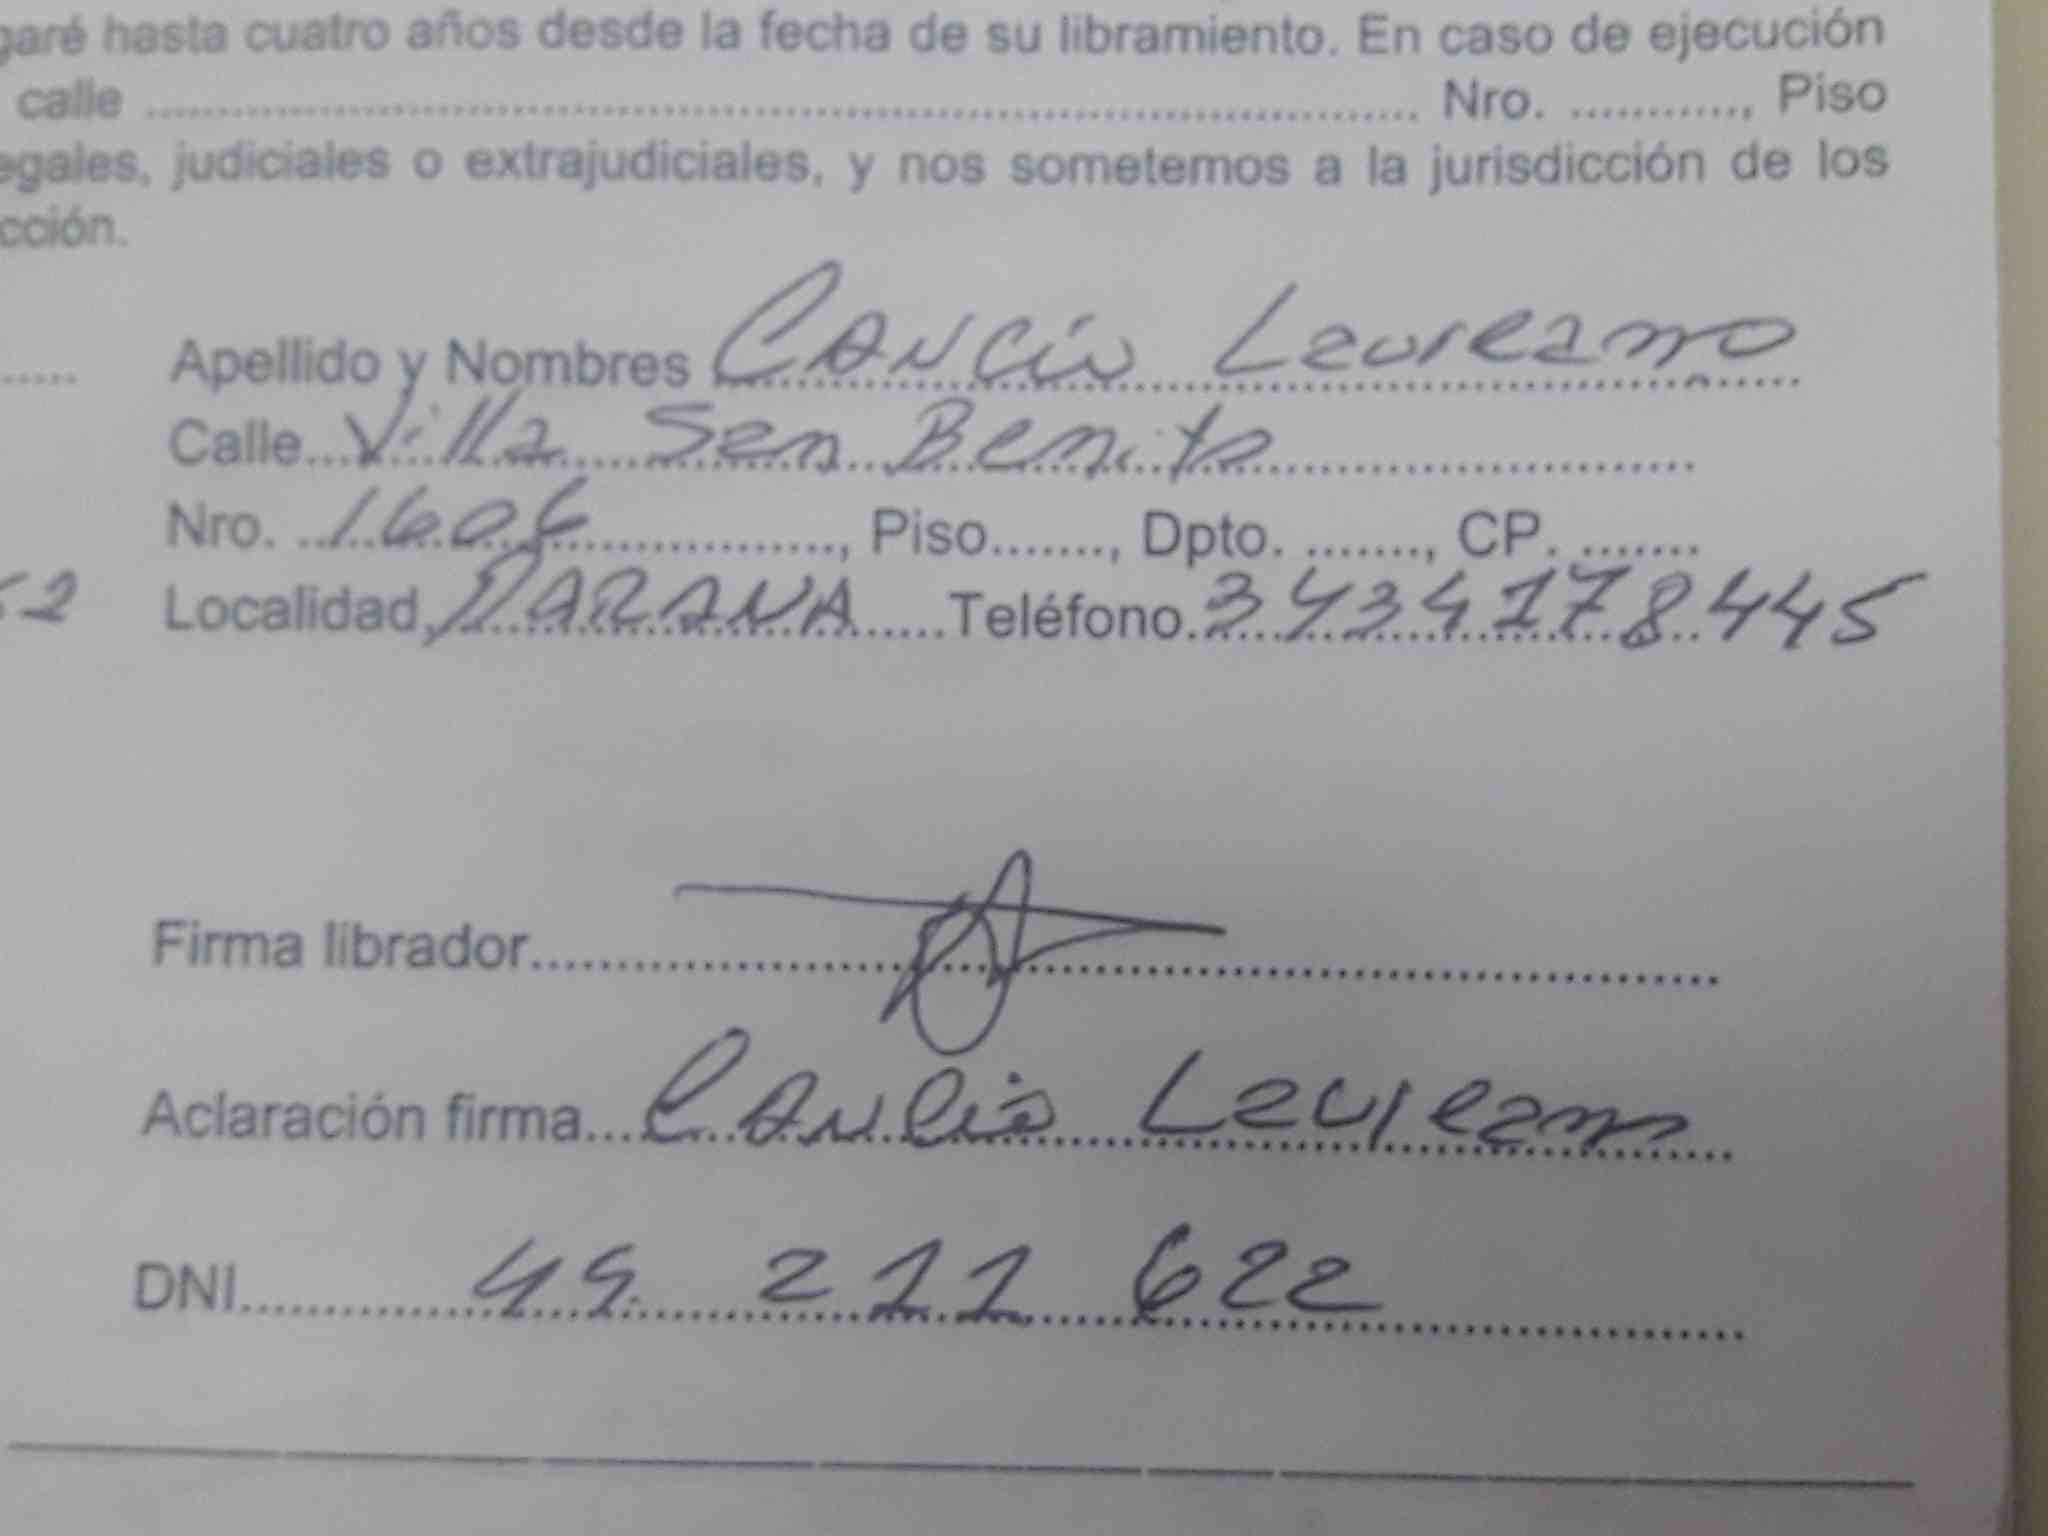 garé hasta cuatro años desde la fecha de su libramiento. En caso de ejecución
calle ........................................ Nro. ..........., Piso
egales, judiciales o extrajudiciales, y nos sometemos a la jurisdicción de los
cción.
Apellido y Nombres Cancio Laureano
Calle...Villa San Benito
Nro. ...1606..............., Piso......., Dpto. ......., CP. .......
52 Localidad PARANA ......Teléfono.3434178445
Firma librador........................................
Aclaración firma....Cancio Laureano
DNI............ 45 211 622